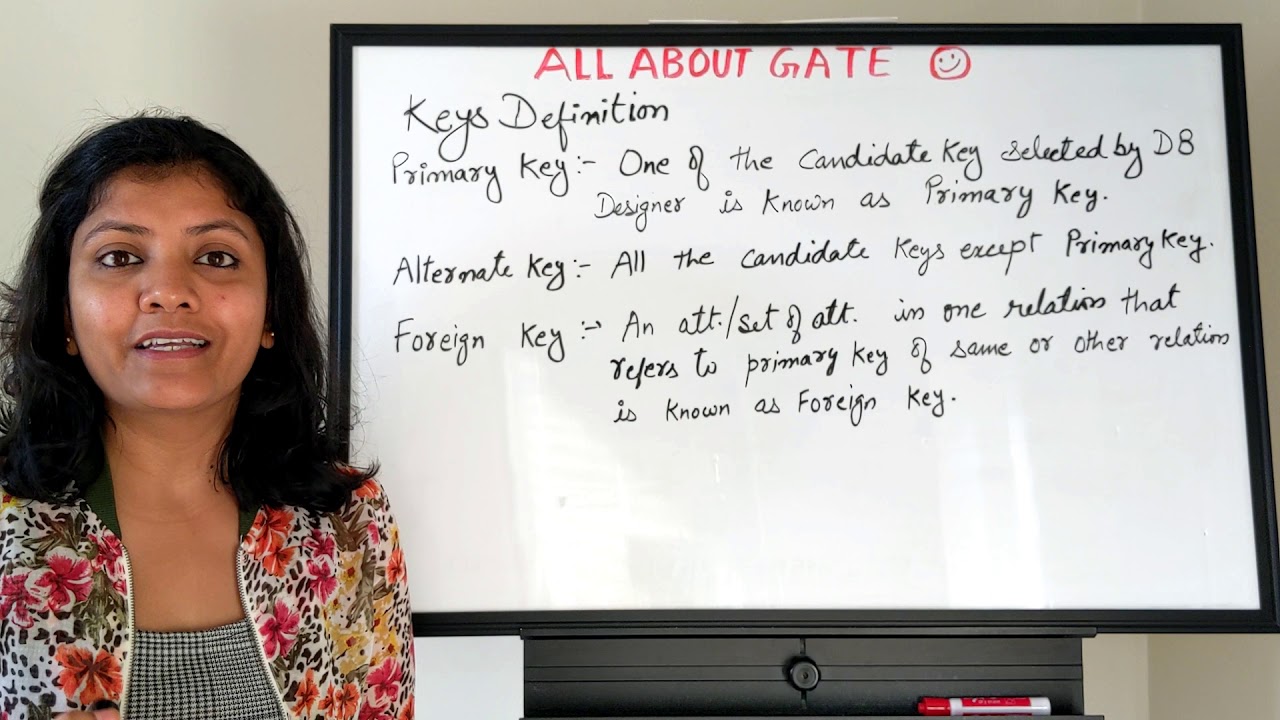 ALL ABOUT GATE
Keys Definition
Primary Key:- One of the candidate Key selected by DB
Designer is Known as Primary Key.
Alternate Key:- All the candidate Keys except Primary Key.
Foreign Key:- An att./set of att. in one relation that
refers to primary key of same or other relation
is known as Foreign Key.